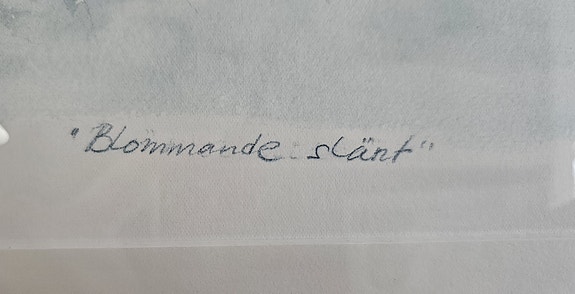 "Blommande slänt"